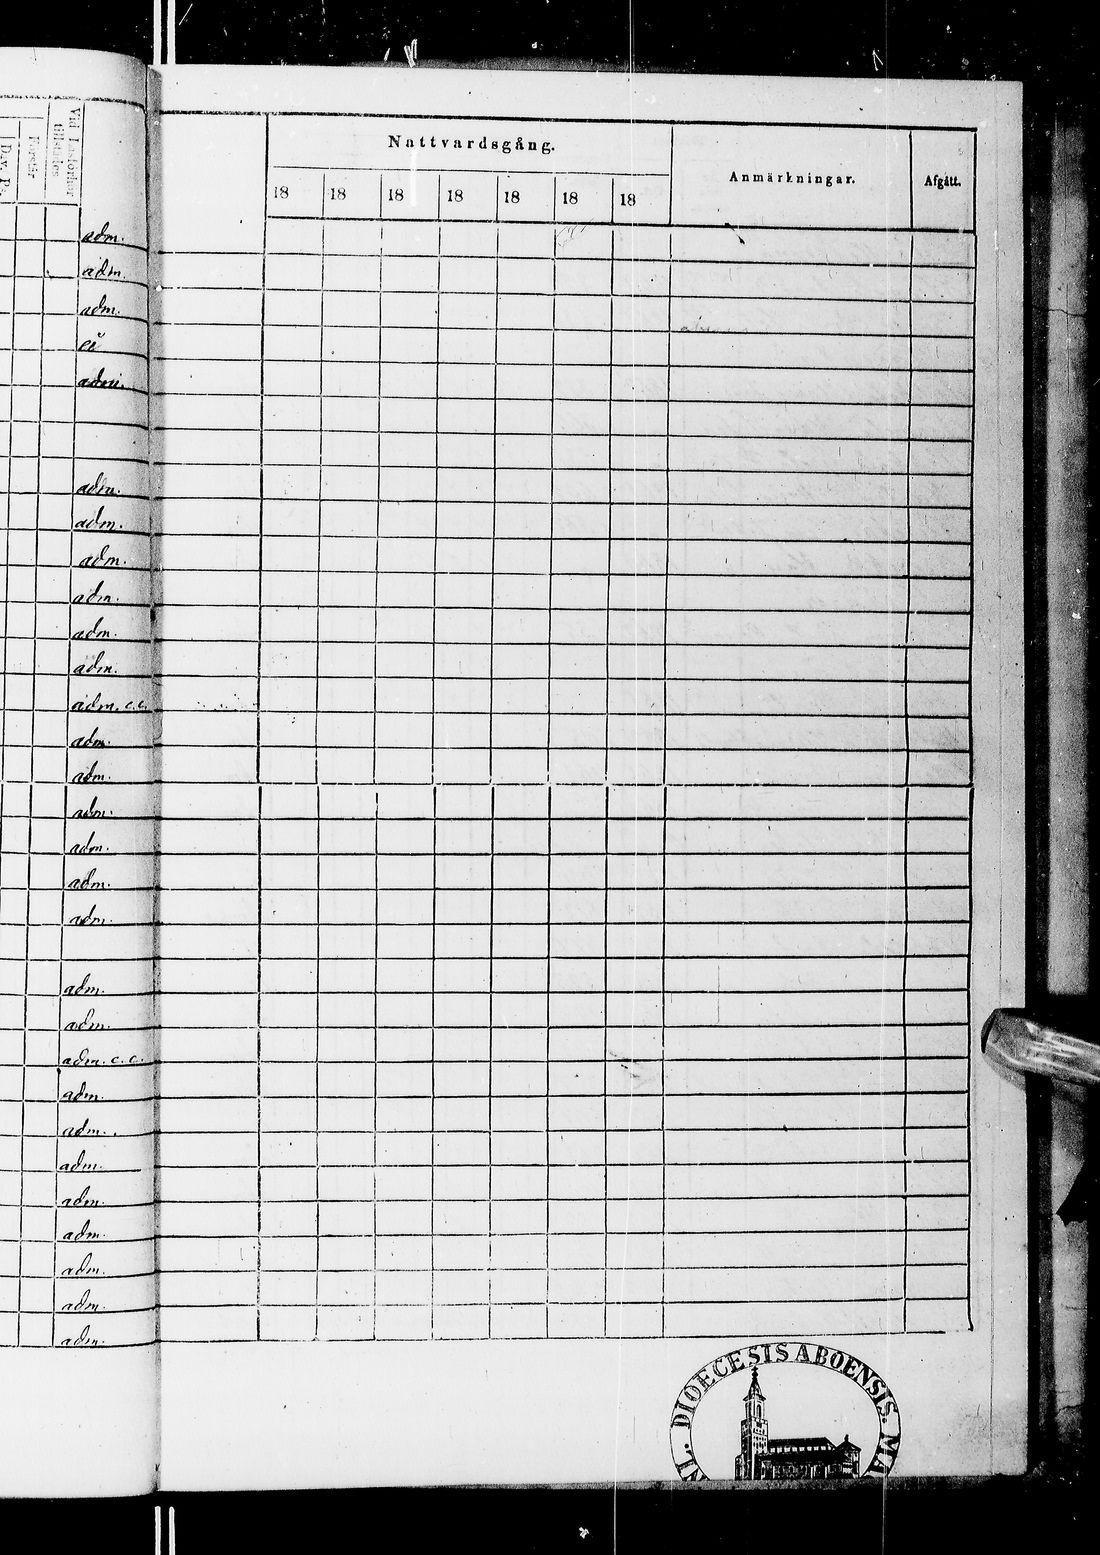 Nattvardsgång.
Anmärkningar. Afgått.
18 18 18 18 18 18 18
Förstår
adm.
adm.
adm.
adm.
adm.
adm.
adm.
adm.
adm.
adm.
adm. c.c.
adm.
adm.
adm.
adm.
adm.
adm.
adm.
adm.
adm. c.c.
adm.
adm.
adm.
adm.
adm.
adm.
adm.
adm.
DIOECESIS ABOENSIS. MA